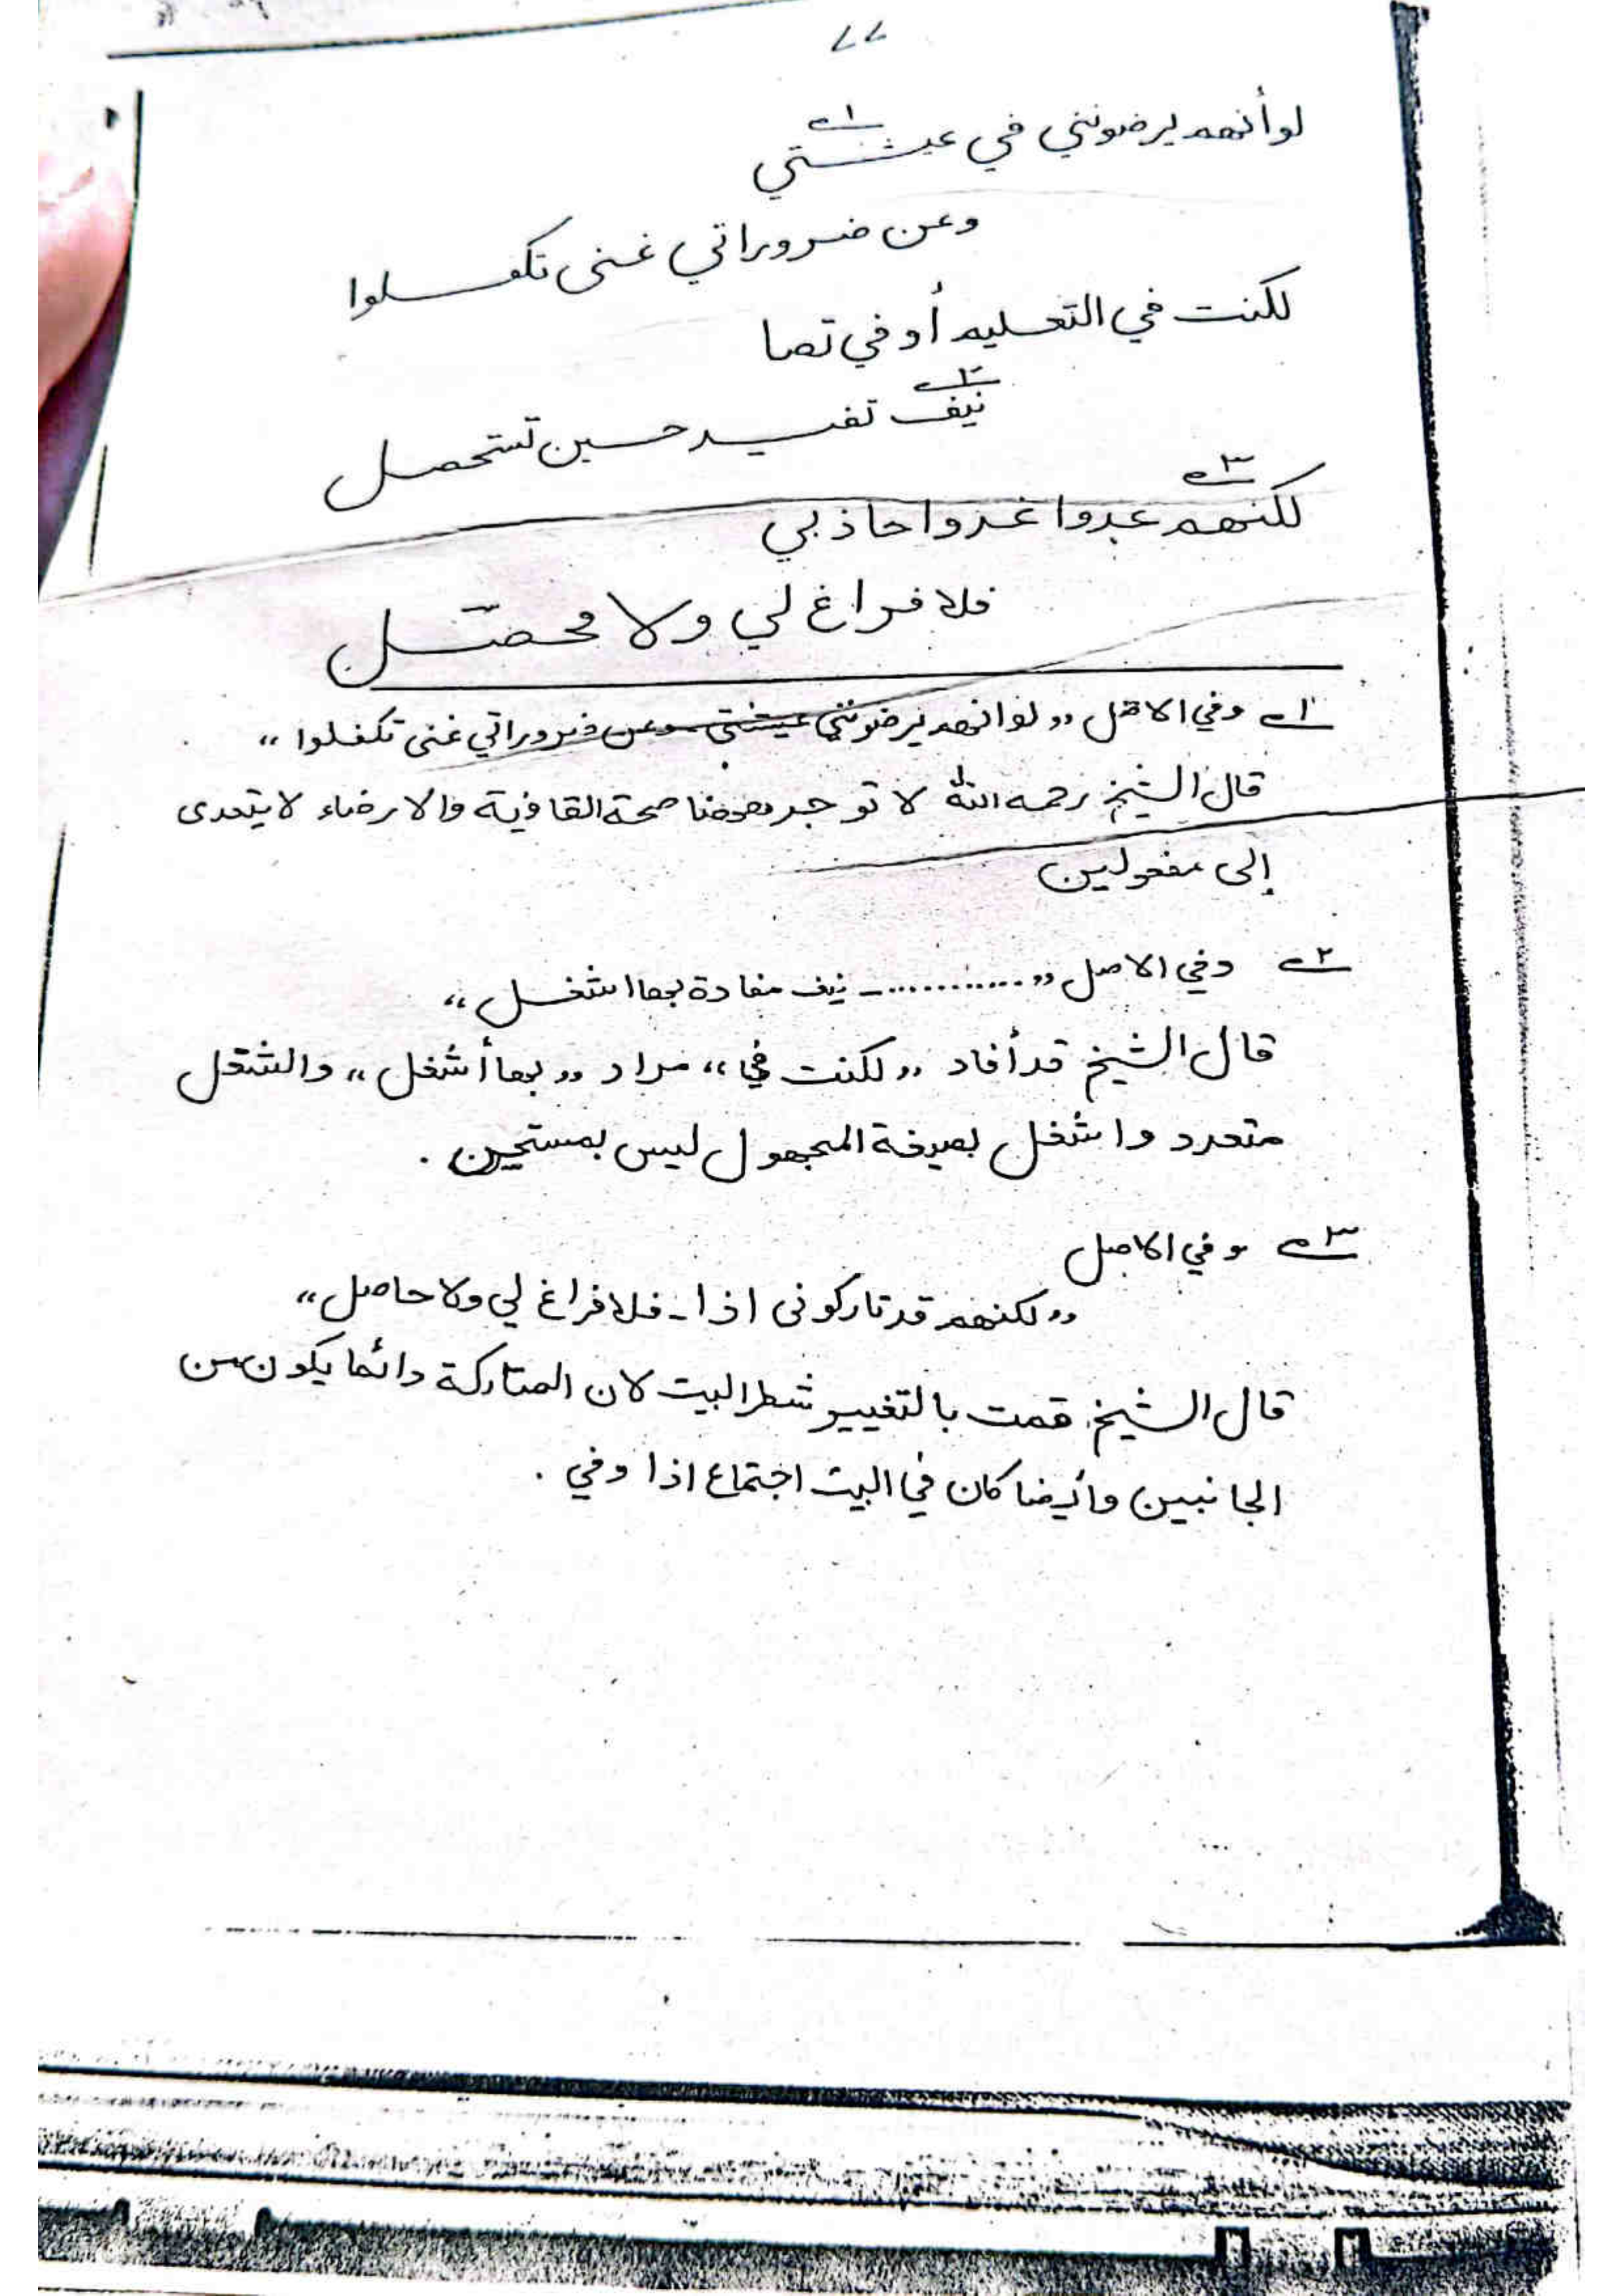 ٧٧
لو أنهم يرضونني في عيشتي ١؎
وعن ضروراتي غنى تكفلوا
لكنت في التعليم أو في تصا
نيف ٢؎ تفيد حين تستحصل
لكنهم ٣؎ عدوا غدوا حاذبي
فلا فراغ لي ولا محصل
١؎ وفي الاصل ,, لو انهم يرضونني عيشتي وعن ضروراتي غنى تكفلوا ,,
قال الشيخ رحمه الله لا توجد ههنا صحة القافية والارضاء لا يتعدى
إلى مفعولين
٢؎ وفي الاصل ,, ............ـ نيف مفادة بها اشغل ,,
قال الشيخ قد أفاد ,, لكنت في ,, مراد ,, بها أشغل ,, والشغل
متعدد واشغل بصيغة المجهول ليس بمستحسن .
٣؎ وفي الاصل
,, لكنهم قد تاركونى اذا ـ فلا فراغ لي ولا حاصل ,,
قال الشيخ قمت بالتغيير شطر البيت لان المتاركة دائما يكون من
الجانبين وأيضا كان في البيت اجتماع اذا وفي .